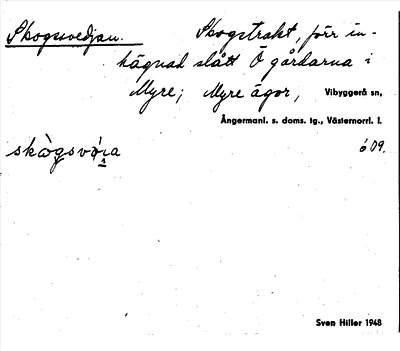 Skogsvedjan. Skogstrakt, förr in-
hägnad slått Ö gårdarna i
Myre; Myre ägor, Vibyggerå sn,
Ångermanl. s. doms. tg., Västernorrl. l.
ó 09.
Sven Hiller 1948